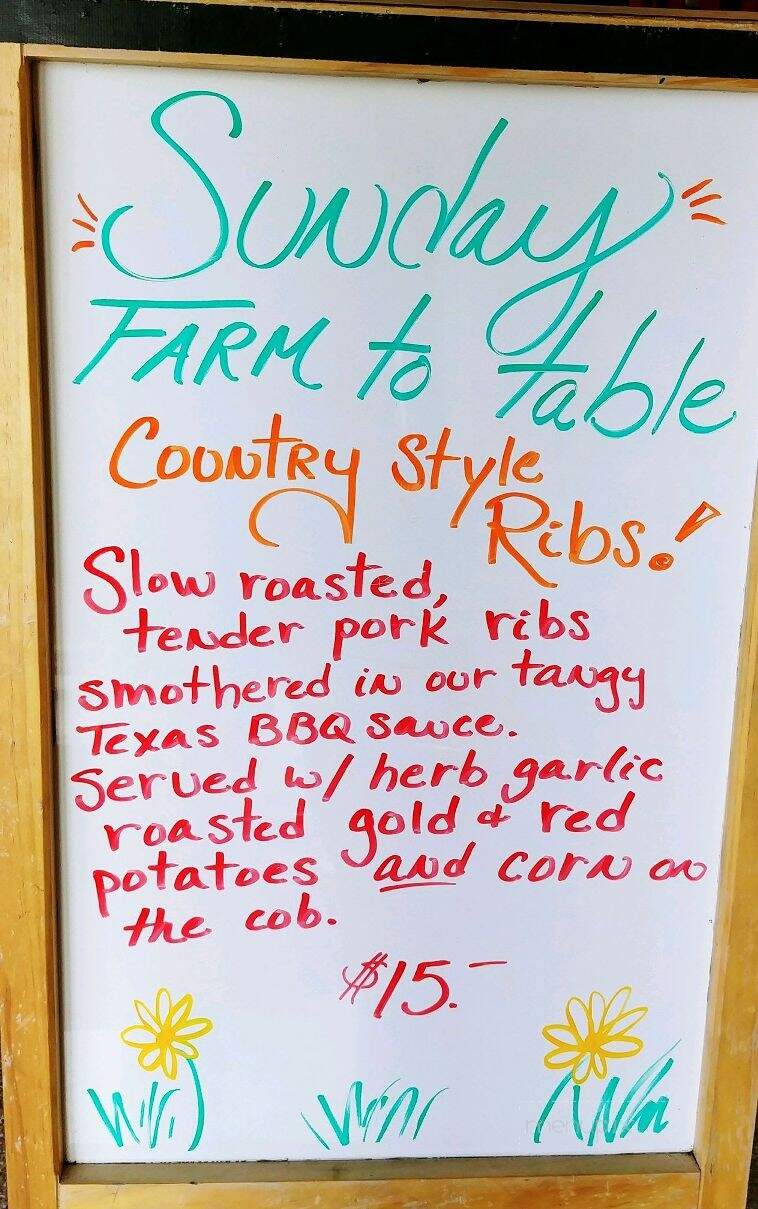 Sunday
FARM to table
Country Style
Ribs!
Slow roasted,
tender pork ribs
smothered in our tangy
Texas BBQ sauce.
Served w/ herb garlic
roasted gold & red
potatoes and corn on
the cob.
$15.-